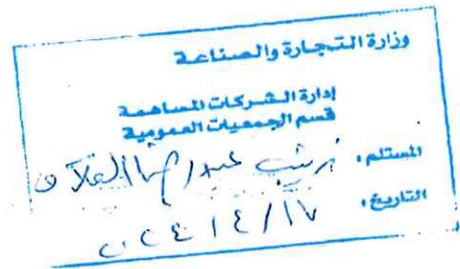 وزارة التجارة والصناعة
إدارة الشركات المساهمة
قسم الجمعيات العمومية
المستلم: زينب عبدالرضا
التاريخ: ٢٠٢٤/٤/١٧